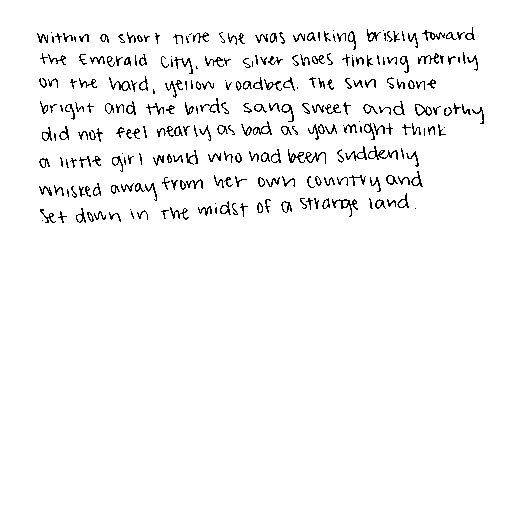 within a short time she was walking briskly toward
the Emerald City, her silver shoes tinkling merrily
on the hard, yellow roadbed. The sun shone
bright and the birds sang sweet and Dorothy
did not feel nearly as bad as you might think
a little girl would who had been suddenly
whisked away from her own country and
set down in the midst of a strange land.